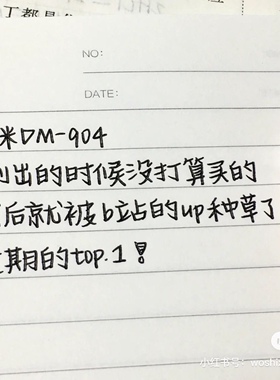 丁都是
NO:
DATE:
米DM-904
出的时候没打算买的
后就被b站的up种草了
期的top.1!
小红书号: wonhi